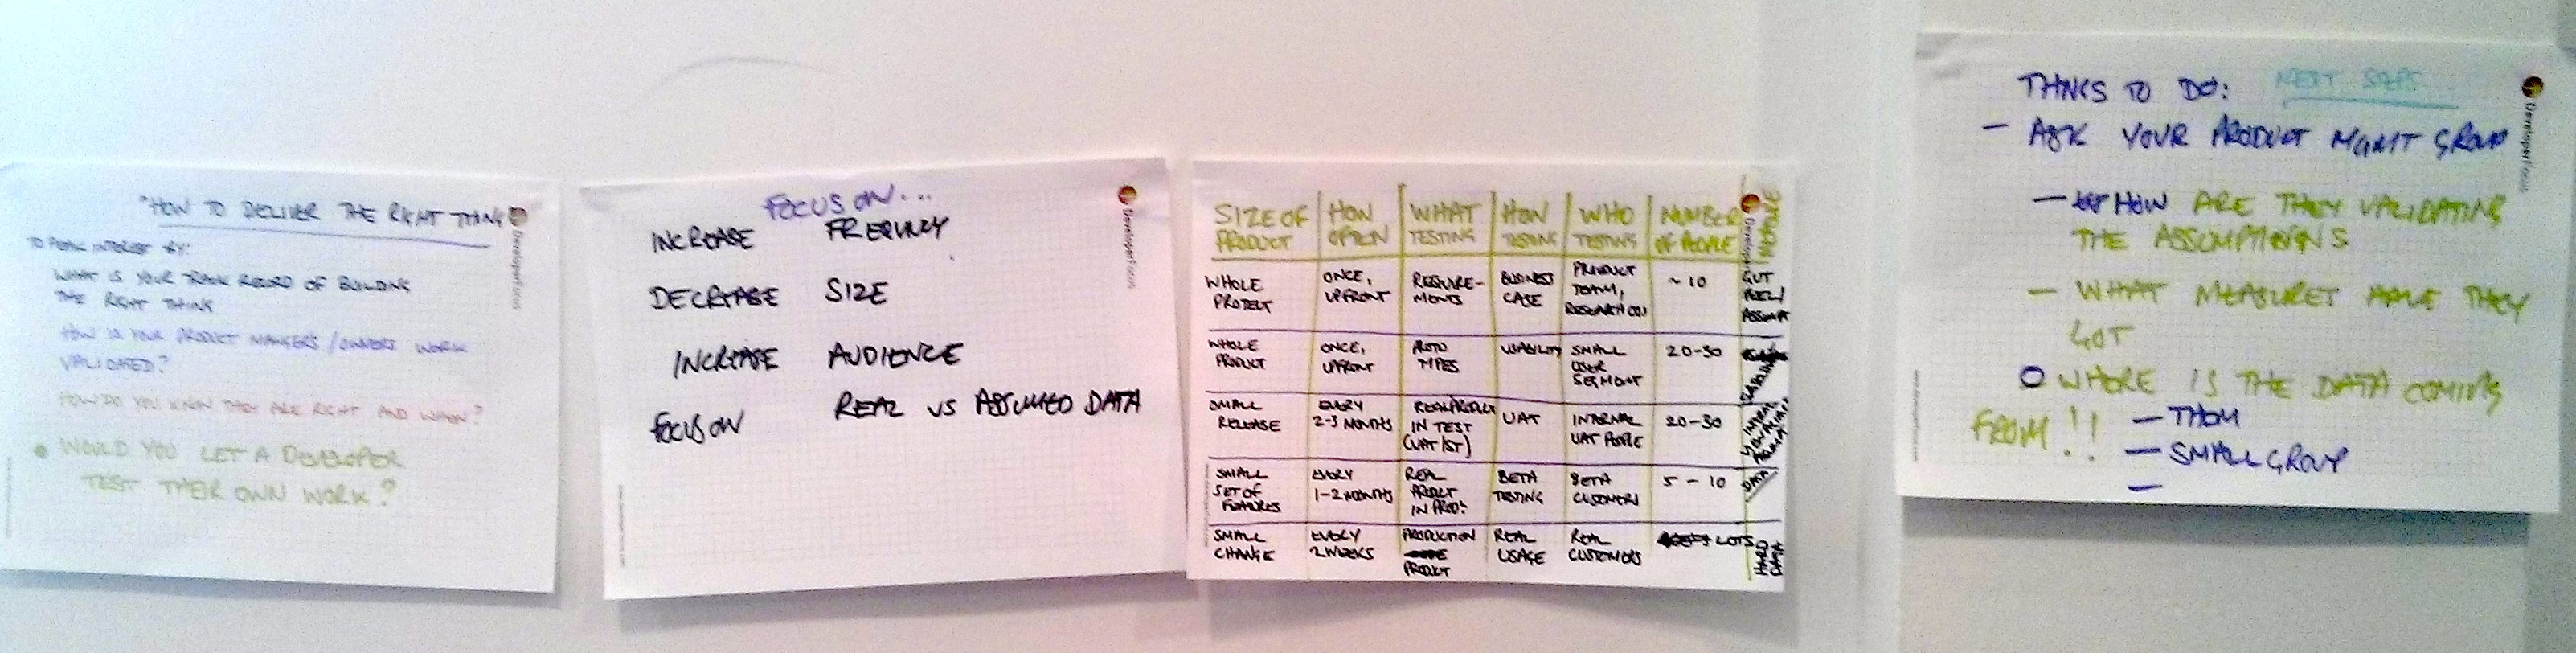 "HOW TO DELIVER THE RIGHT THING"
DeveloperFocus
TO PEAK INTEREST BY:
WHAT IS YOUR TRACK RECORD OF BUILDING
THE RIGHT THING
HOW IS YOUR PRODUCT MANGERS/OWNERS WORK
VALIDATED?
HOW DO YOU KNOW THEY ARE RIGHT AND WHEN?
WOULD YOU LET A DEVELOPER
TEST THEIR OWN WORK?
FOCUS ON...
DeveloperFocus
INCREASE FREQUNCY
DECREASE SIZE
INCREASE AUDIENCE
FOCUS ON REAL VS ASSUMED DATA
SIZE OF PRODUCT | HOW OFTEN | WHAT TESTING | HOW TESTING | WHO TESTING | NUMBER OF PEOPLE
WHOLE PROJECT | ONCE, UPFRONT | REQUIRE-MENTS | BUSINESS CASE | PRODUCT TEAM, RESEARCH | ~10 | GUT FEEL/
WHOLE PRODUCT | ONCE, UPFRONT | PROTO TYPES | USABILITY | SMALL USER SEGMENT | 20-30
SMALL RELEASE | EVERY 2-3 MONTHS | REAL PRODUCT IN TEST (UAT/ST) | UAT | INTERNAL UAT PEOPLE | 20-30
SMALL SET OF FEATURES | EVERY 1-2 MONTHS | REAL PRODUCT IN PROD: | BETA TESTING | BETA CUSTOMERS | 5 - 10 | DATA
SMALL CHANGE | EVERY 2 WEEKS | PRODUCTION PRODUCT | REAL USAGE | REAL CUSTOMERS | LOTS | HARD DATA
THINGS TO DO: NEXT STEPS
DeveloperFocus
— ASK YOUR PRODUCT MGMT GROUP
— HOW ARE THEY VALIDATING
THE ASSUMPTIONS
— WHAT MEASURES HAVE THEY
GOT
O WHERE IS THE DATA COMING
FROM!! — THEM
— SMALL GROUP
—